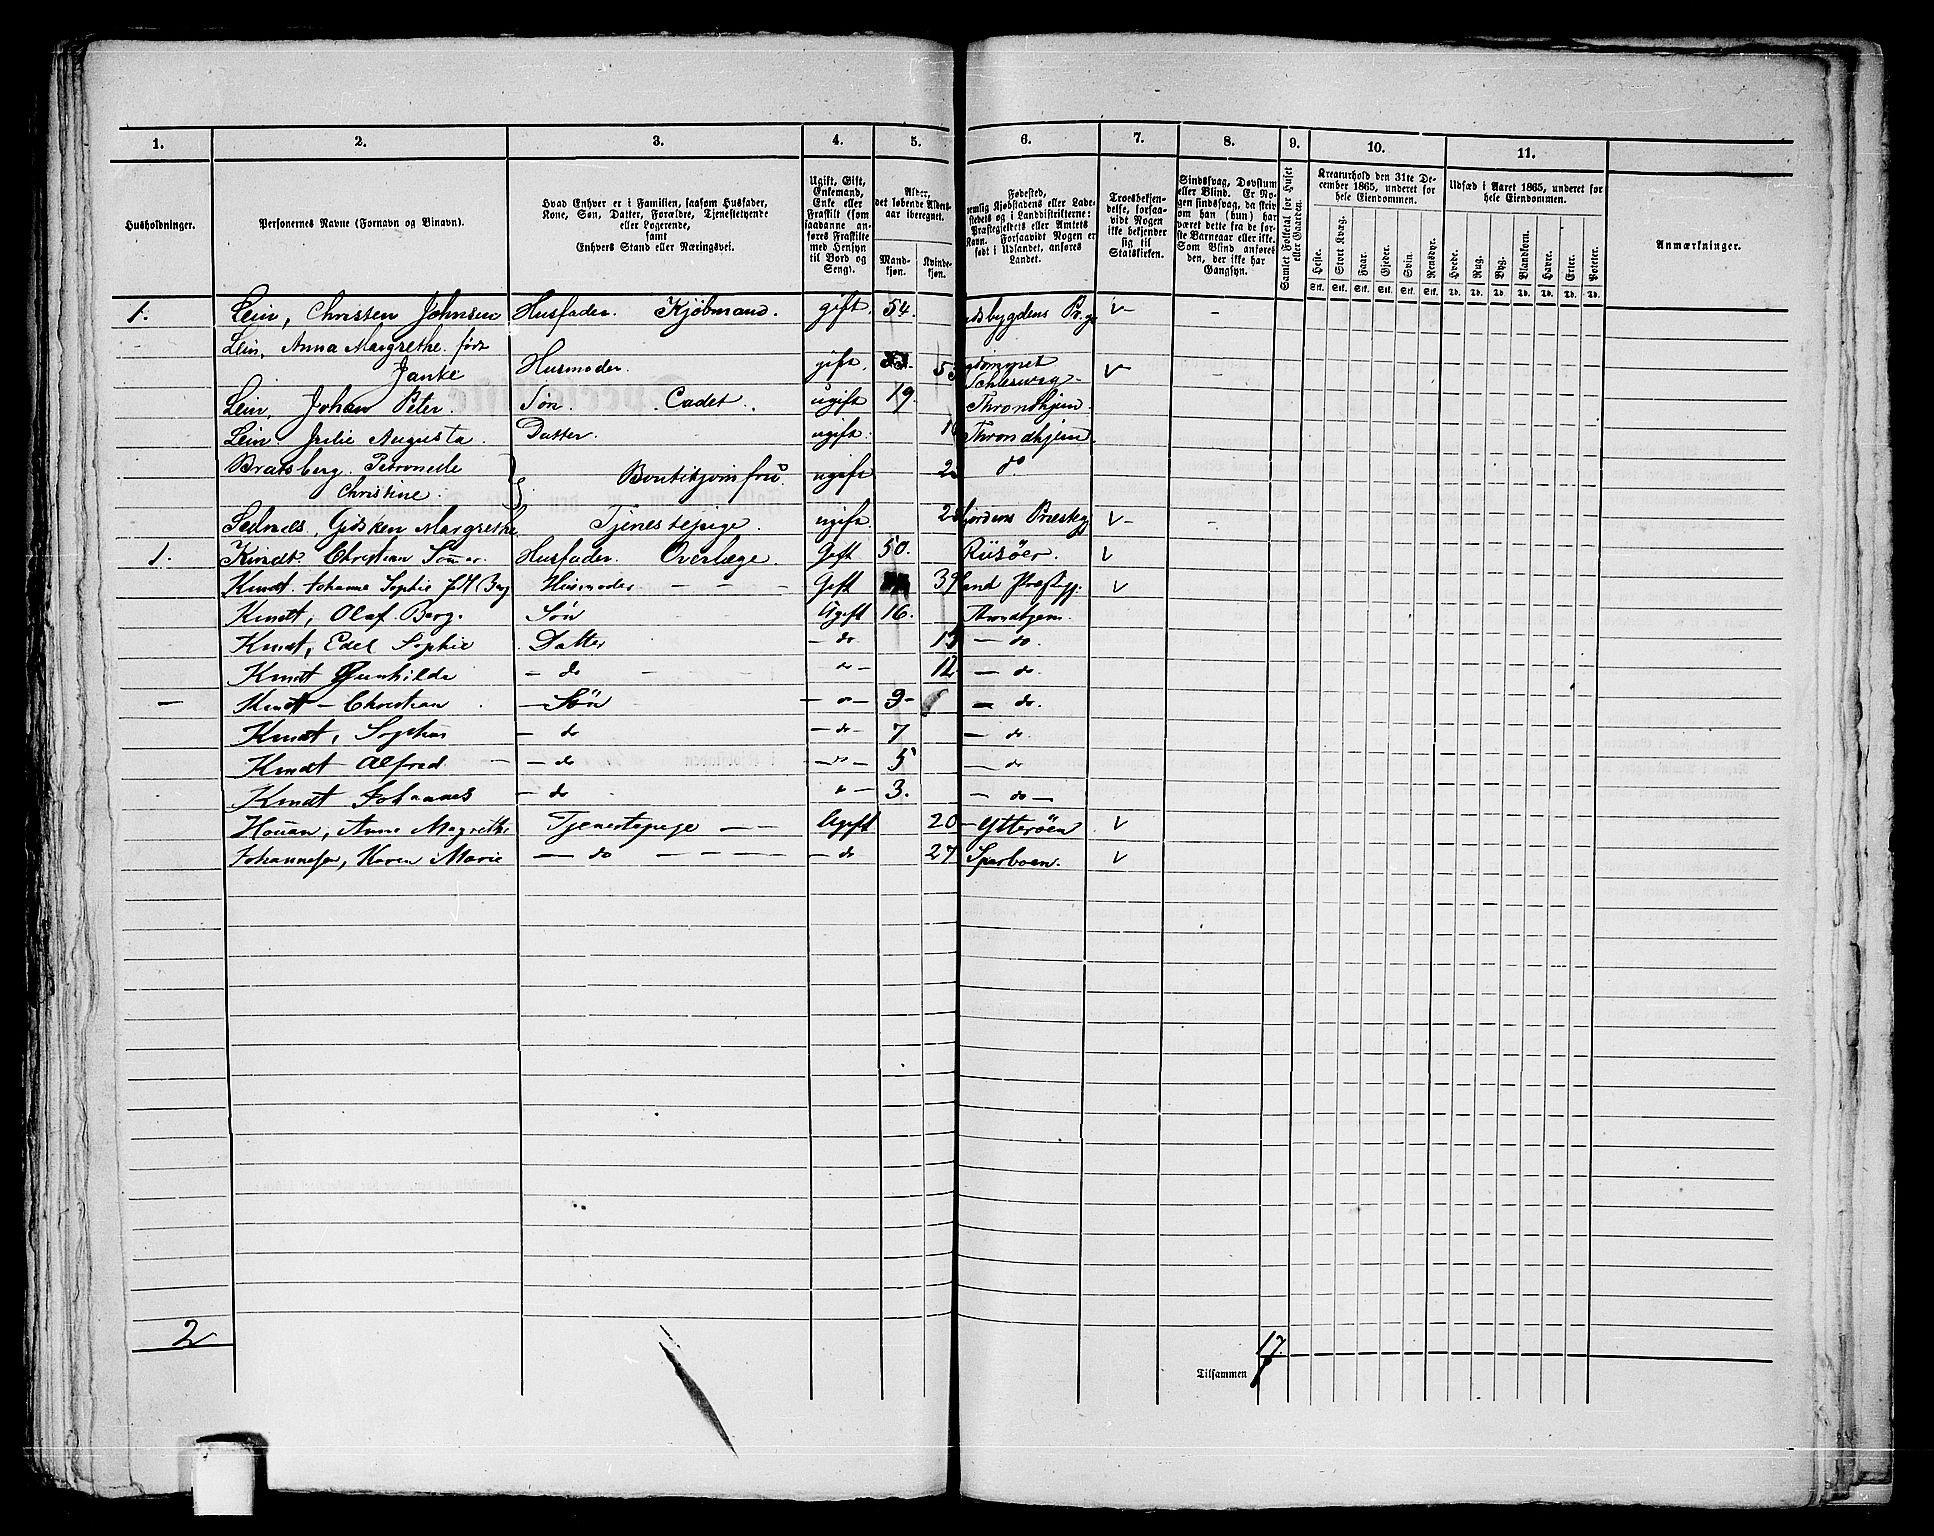 1. 2. 3. 4. 5. 6. 7. 8. 9. 10. 11.
Husholdninger.
Personernes Navne (Fornavn og Binavn).
Hvad Enhver er i Familien, saasom Husfader,
Kone, Søn, Datter, Forældre, Tjenestetyende
eller Logerende,
samt
Enhvers Stand eller Næringsvei.
Ugift, Gift,
Enkemand,
Enke eller
Fraskilt (som
saadanne an-
føres Fraskilte
med Hensyn
til Bord og
Seng).
Alder,
det løbende Alders-
aar iberegnet.
Mand-
kjøn.
Kvinde-
kjøn.
Fødested,
nemlig Kjøbstadens eller Lade-
stedets og i Landdistrikterne:
Præstegjeldets eller Amtets
Navn. Forsaavidt Nogen er
født i Udlandet, anføres
Landet.
Troesbekjen-
delse, forsaa-
vidt Nogen
ikke bekjender
sig til
Statskirken.
Sindssvag, Døvstum
eller Blind. Er No-
gen sindssvag, da skriv
om han (hun) har
været dette fra de før-
ste Barneaar eller ikke.
Som Blind anføres
den, der ikke har
Gangsyn.
Samlet Folketal for Huset
eller Gaarden.
Kreaturhold den 31te De-
cember 1865, underet for
hele Eiendommen.
Heste. Stort Kvæg. Faar. Gjeder. Svin. Rensdyr.
Stk. Stk. Stk. Stk. Stk. Stk.
Udsæd i Aaret 1865, underet for
hele Eiendommen.
Hvede. Rug. Byg. Blandkorn. Havre. Erter. Poteter.
Td. Td. Td. Td. Td. Td. Td.
Anmærkninger.
1. Lein, Christen Johnsen Husfader. Kjøbmand. gift. 54. dsbygdens Pr.gj
Lein, Anna Margrethe. født
Janke Husmoder. gift. 53
Schleswig
Lein, Johan Peter. Søn. Cadet. ugift 19. Throndhjem.
Lein Julie Augusta. Datter. ugift. Throndhjem.
Bratsberg. Petronelle
Christine. Boutikjomfru. ugift do
Selnæs, Gidsken Margrethe Tjenestepige. ugift. fjordens Præstegj
1. Kindt. Christian Sommer. Husfader. Overlæge. Gift 50. Riisöer.
Kindt. Johanne Sophie f. M. Berg Husmoder - - - Gift 39 land Præstegj.
Kindt, Olaf Berg. Søn Ugift 16. Throndhjem.
Kindt, Edel Sophie Datter - do 13 - do.
Kindt Gunhilde - do - do - 12 - do.
- Kindt - Christian - Søn - do - 9 - - do.
Kindt, Sophus - do - do - 7 - do
Kindt Alfred - - do - do - 5 - do
Kindt Johannes - do do - 3. - do -
Houan, Anne Magrethe Tjenestepige - - Ugift 20 - Ytterøen.
Johannesen, Karen Marie - do - - - - - do 27 Sparboen.
2
17.
Tilsammen